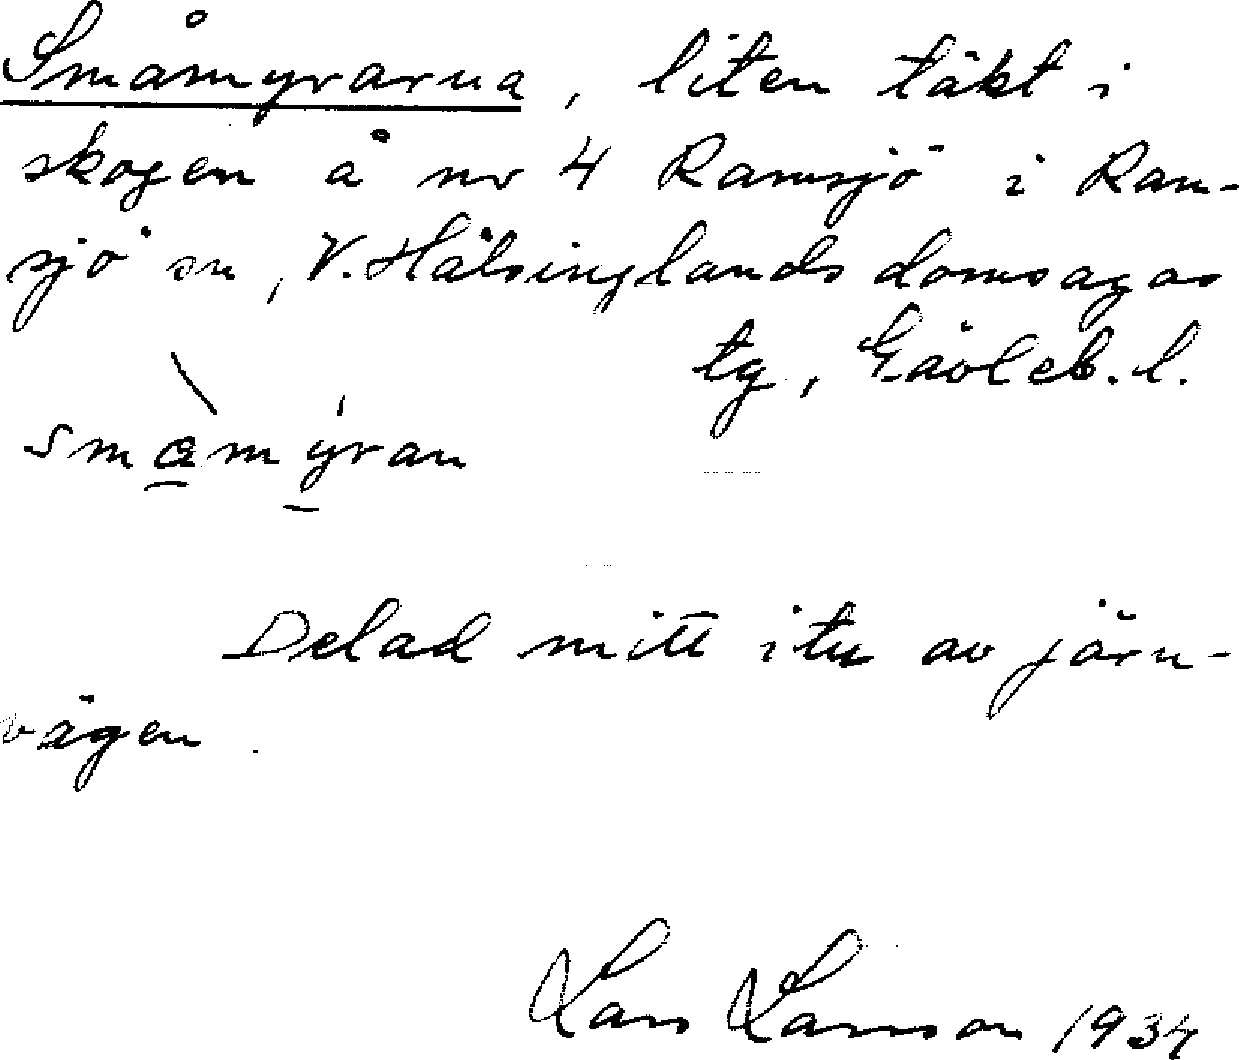 Småmyrarna, liten täkt i
skogen å nr 4 Ramsjö i Ram-
sjö sn, V. Hälsinglands domsagas
tg, Gävleb. l.
småmyran
Delad mitt itu av järn-
vägen.
Lars Larsson 1934